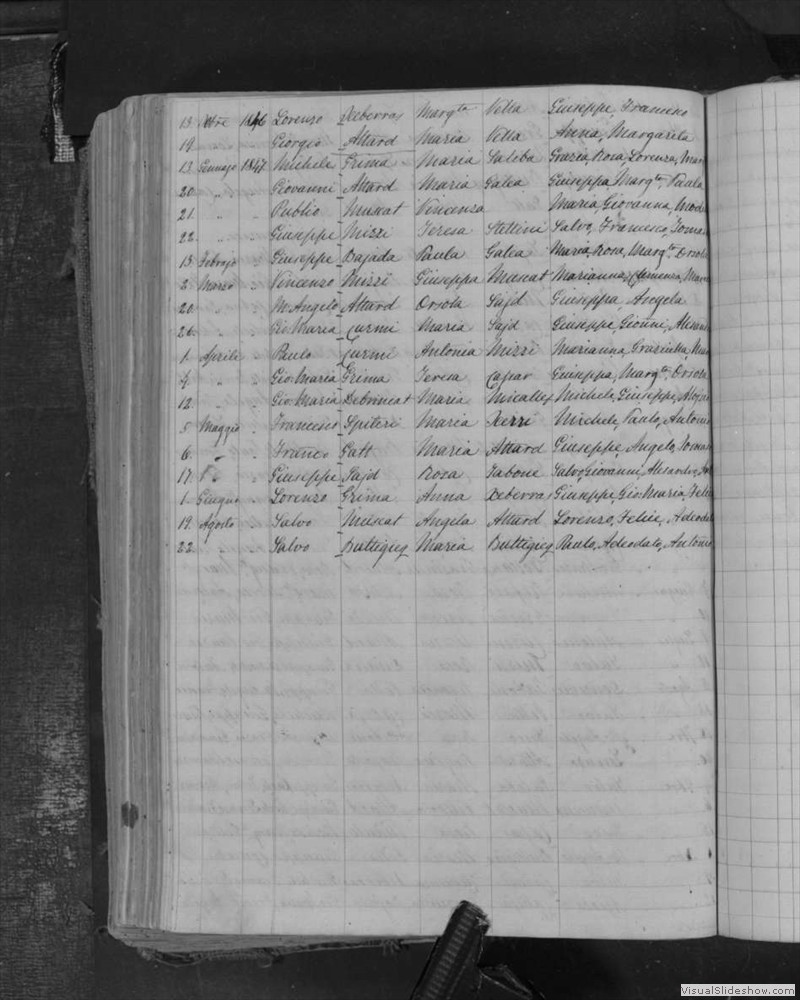 13. 1846 Lorenzo Deberras Marg.ta Vella Giuseppe, Francesco
19. " " Giorgio Attard Maria Vella Anna, Margarita
13. Gennajo 1847 Michele Grima Maria Saliba Grazia, Rosa, Lorenza, Mar
20. " " Giovanni Attard Maria Galea Giuseppa, Marg.ta, Paula
21. " " Publio Muscat Vincenza Maria, Giovanna,
22. " " Giuseppe Mizzi Teresa Stellini Salvo, Francesco, Toma
13. Febrajo " Giuseppe Bajada Paula Galea Maria, Rosa, Marg.ta, Orsola
2. Marzo " Vincenzo Mizzi Giuseppa Muscat Marianna,
20. " " M. Angelo Attard Orsola Sajd Giuseppa, Angela
26. " " Gio: Maria Curmi Maria Sajd Giuseppe, Giovni,
1. Aprile " Paulo Curmi Antonia Mizzi Marianna,
4. " " Gio: Maria Grima Teresa Caspar Giuseppa, Marg.ta, Orsola
12. " " Gio: Maria Debrincat Maria Micallef Michele, Giuseppe,
5. Maggio " Francesco Spiteri Maria Xerri Michele, Paulo, Antonio
6. " " Franco Gatt Maria Attard Giuseppe, Angelo, Tomas
17. " Giuseppe Sajd Rosa Tabone Salvo, Giovanni,
1. Giugno " Lorenzo Grima Anna Deberras Giuseppe, Gio: Maria, Felice
19. Agosto " Salvo Muscat Angela Attard Lorenzo, Felice, Adeodat
22. Salvo Buttigieg Maria Buttigieg Paulo, Adeodato, Antonio
VisualSlideshow.com